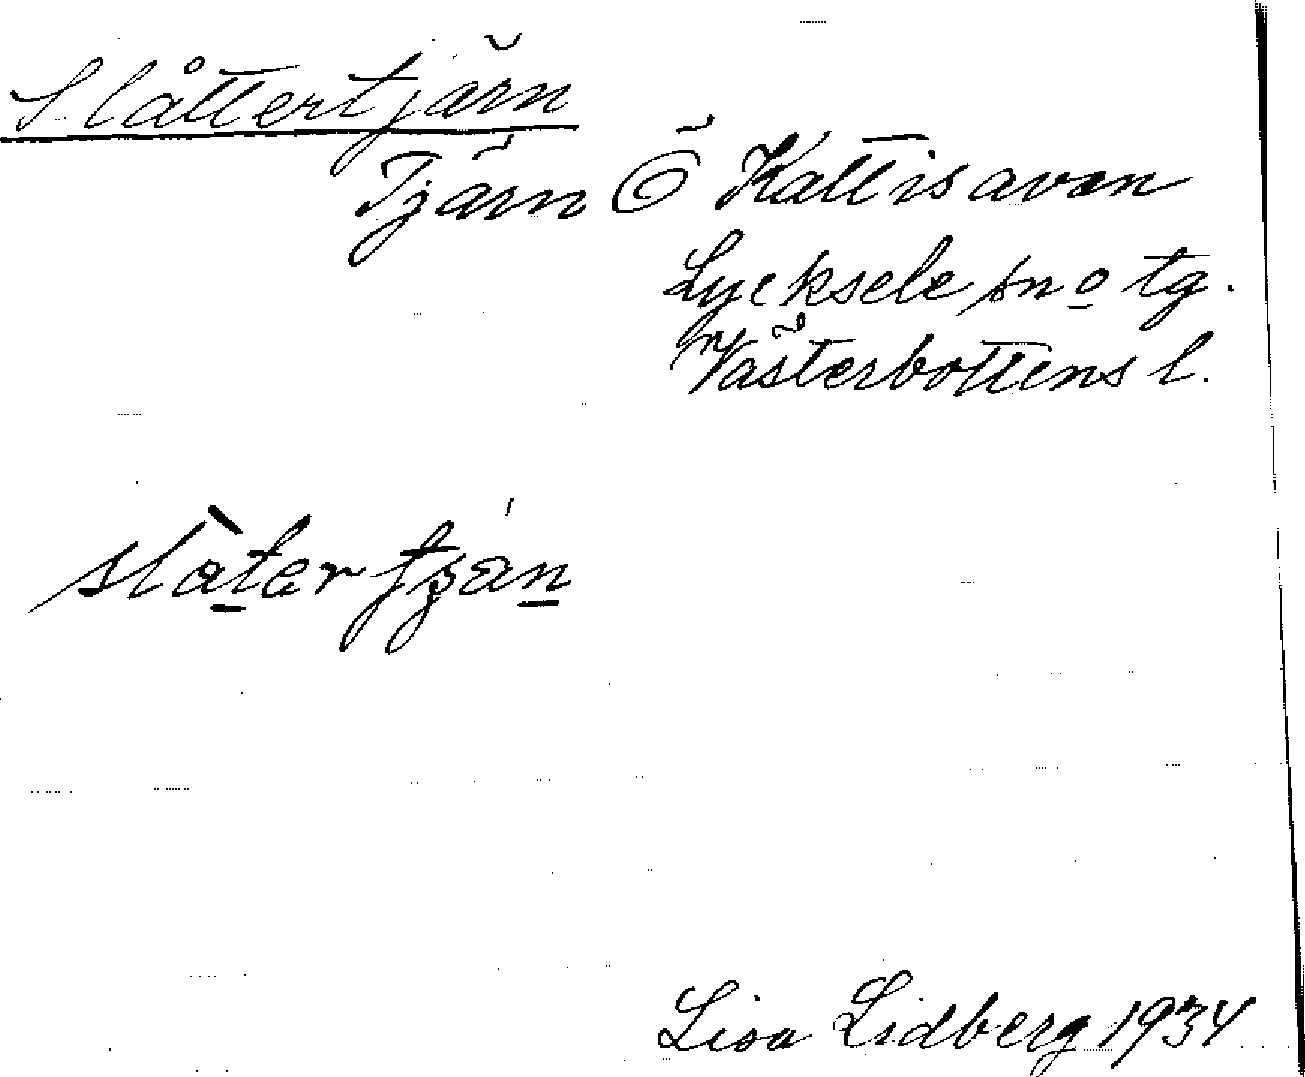 Slåttertjärn
Tjärn Ö Kattisavan
Lycksele sn o tg.
Västerbottens l.
Lisa Lidberg 1934